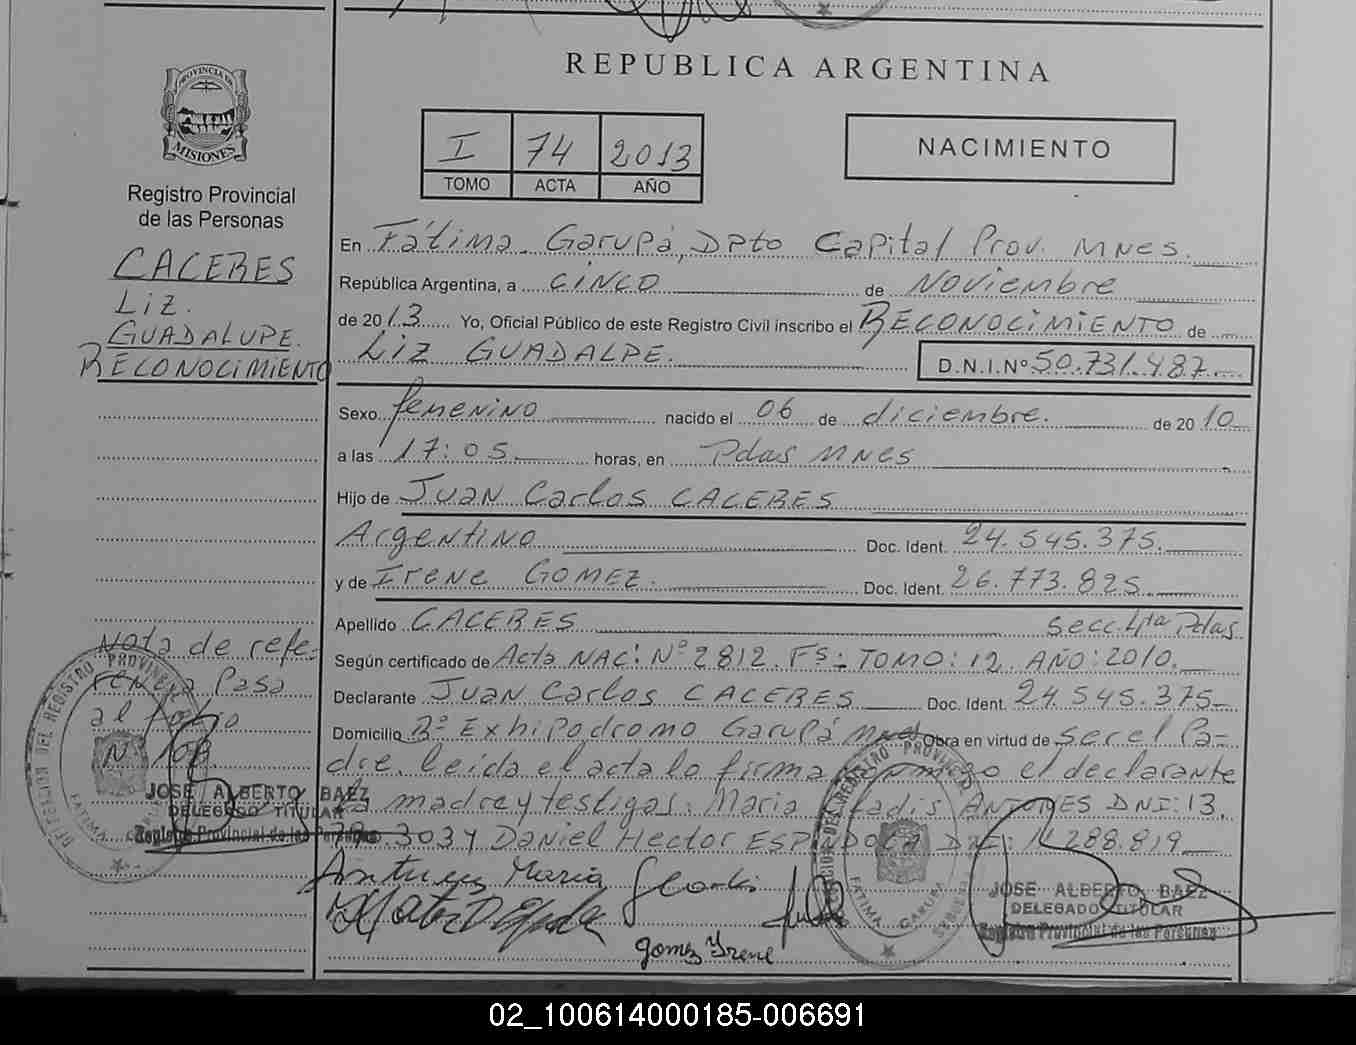 REPUBLICA ARGENTINA
PROVINCIA DE
MISIONES
Registro Provincial
de las Personas
CACERES
LIZ.
GUADALUPE.
RECONOCIMIENTO
I 74 2013
TOMO ACTA AÑO
NACIMIENTO
En Fátima. Garupá, Dpto Capital Prov. MNES.
República Argentina, a CINCO de Noviembre
de 2013 Yo, Oficial Público de este Registro Civil inscribo el RECONOCIMIENTO de
LIZ GUADALPE. D.N.I.Nº 50.731.487.
Sexo femenino nacido el 06 de diciembre. de 2010
a las 17:05 horas, en Pdas MNES
Hijo de JUAN Carlos CACERES
Argentino Doc. Ident. 24.545.375.
y de Irene GOMEZ. Doc. Ident. 26.773.825.
Apellido CACERES Secc. 4ta Pdas
Según certificado de Acta NAC: Nº 2812. Fs: TOMO: 12. AÑO: 2010.
Declarante JUAN Carlos CACERES Doc. Ident. 24.545.375
Domicilio Bº Exhipodromo Garupá Mnes Obra en virtud de ser el Pa=
dre. leida el acta lo firma el declarante
madre y testigos: Maria ANTUNES DNI: 13.
303 y Daniel Hector ESPINDOLA DNI: 288.819
Nota de refe=
rencia Pasa
al folio
Nº 108
JOSE ALBERTO BAEZ
DELEGADO TITULAR
Registro Provincial de las Personas
Antunes Maria Gladis
Gomez Irene
JOSE ALBERTO BAEZ
DELEGADO TITULAR
Registro Provincial de las Personas
02_100614000185-006691